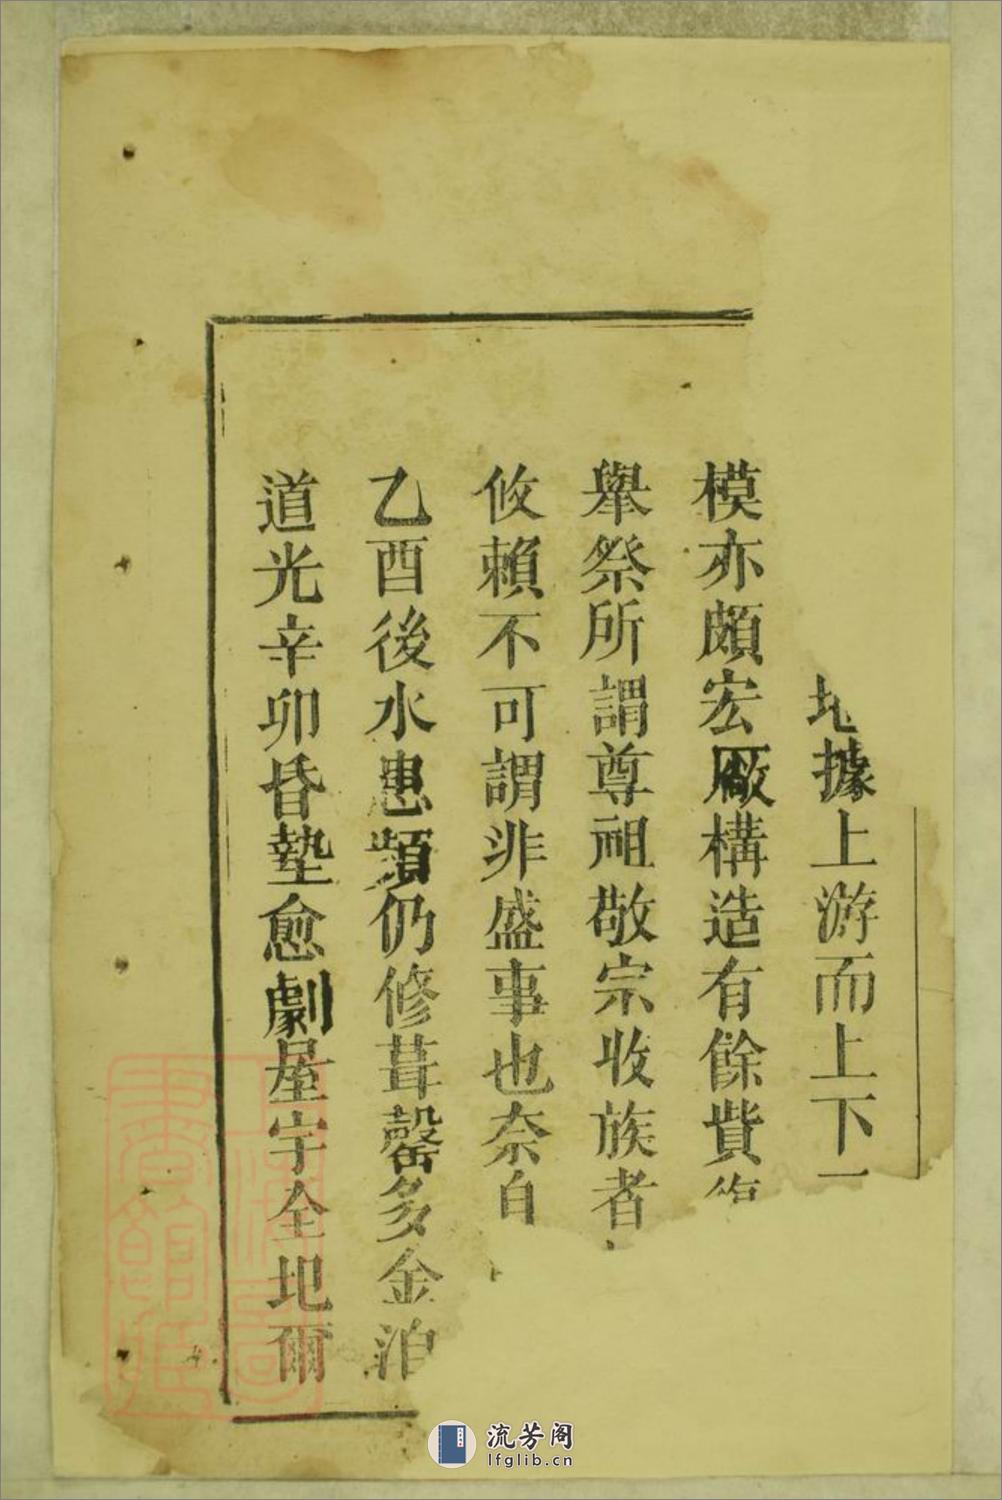 地據上游而上下
模亦頗宏厰構造有餘貲
舉祭所謂尊祖敬宗收族者
攸賴不可謂非盛事也奈自
乙酉後水患頻仍修葺罄多金洎
道光辛卯昏墊愈劇屋宇全圯爾
流芳阁
lfglib.cn